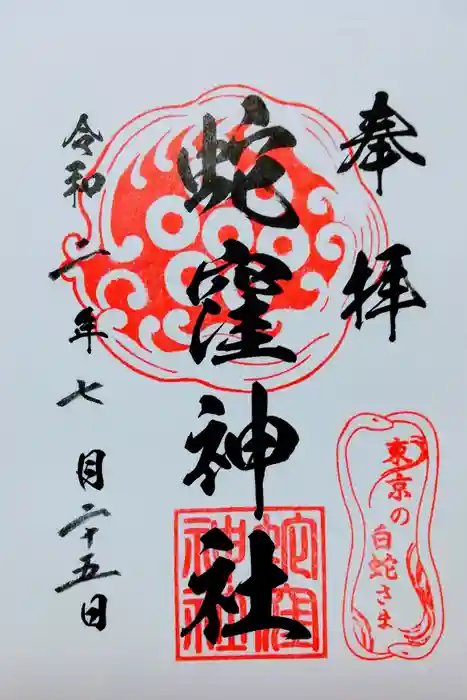 奉拝
東京の
白蛇さま
蛇窪神社
蛇窪
神社
令和二年七月二十五日